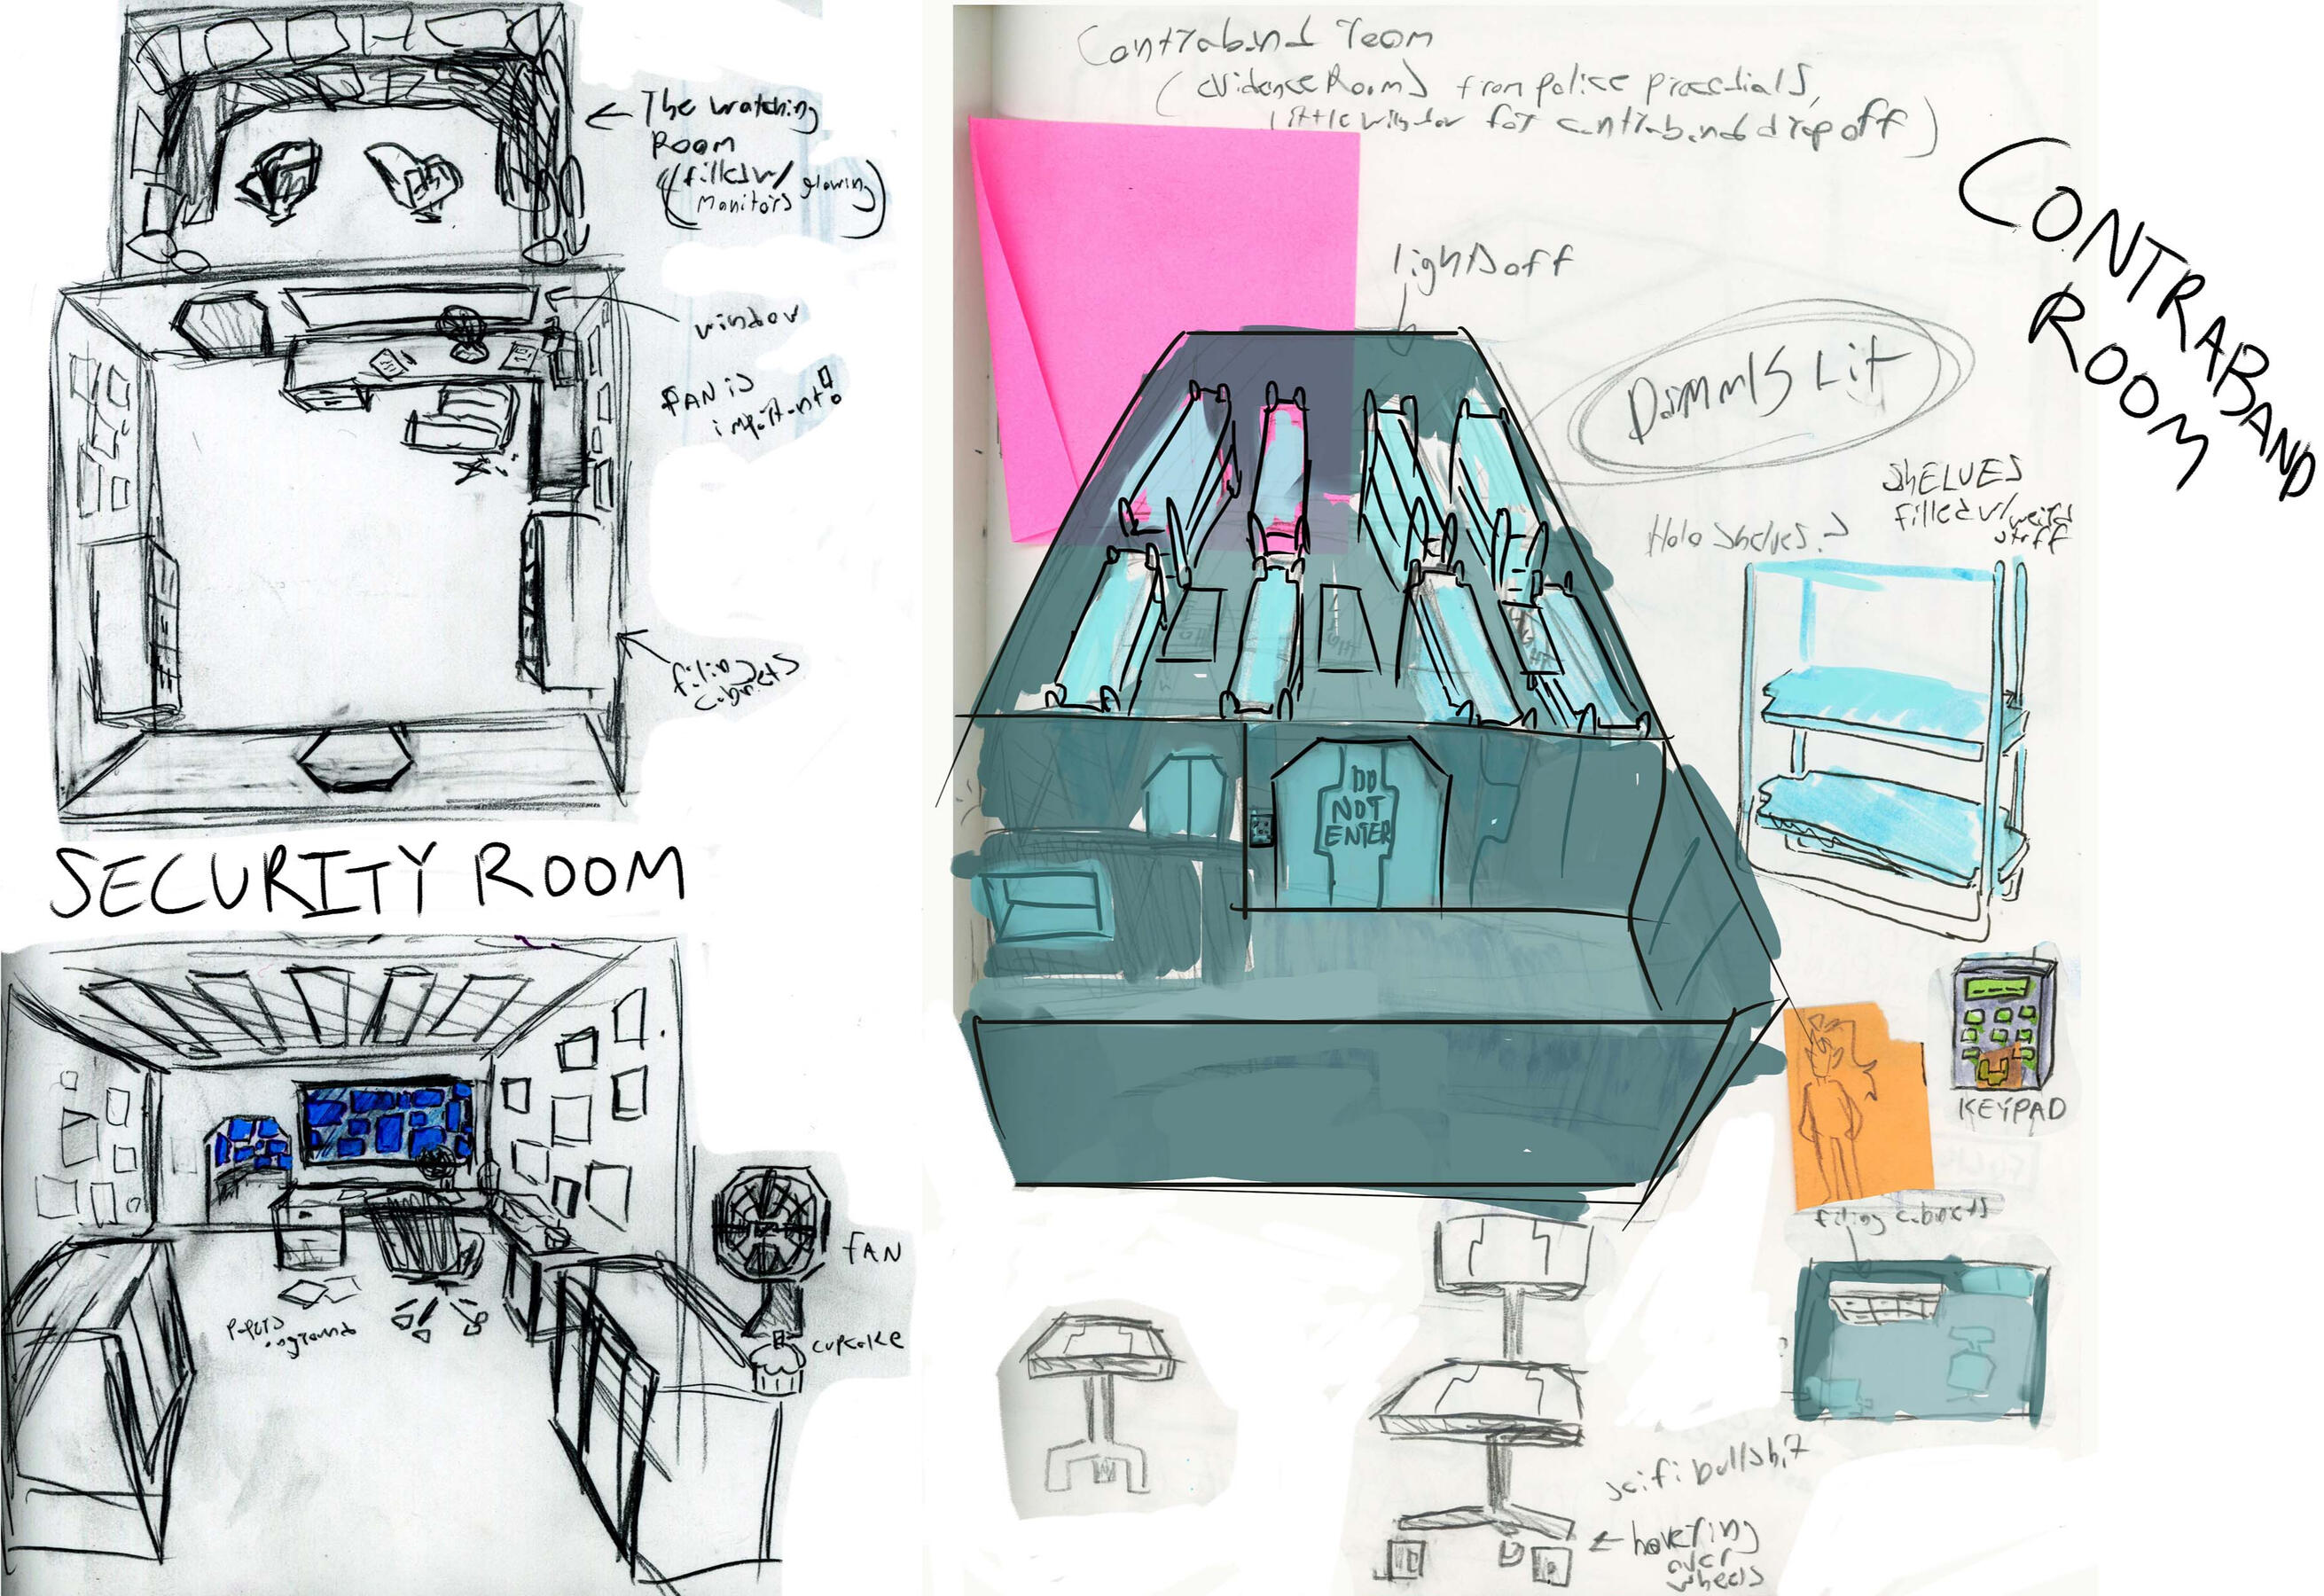 ← The watching
Room
(filled w/ glowing
monitors)
window
FAN is
important!
filing
cabinets
SECURITY ROOM
FAN
cupcake
papers
on ground
Contraband room
(evidence Rooms from police procedials,
little window for contraband drop off)
CONTRABAND
ROOM
lights off
Dimmly Lit
SHELVES
filled w/ weird
stuff
Holo shelves?
DO
NOT
ENTER
KEYPAD
filing cabinets
scifi bullshit
← hovering
over
wheels